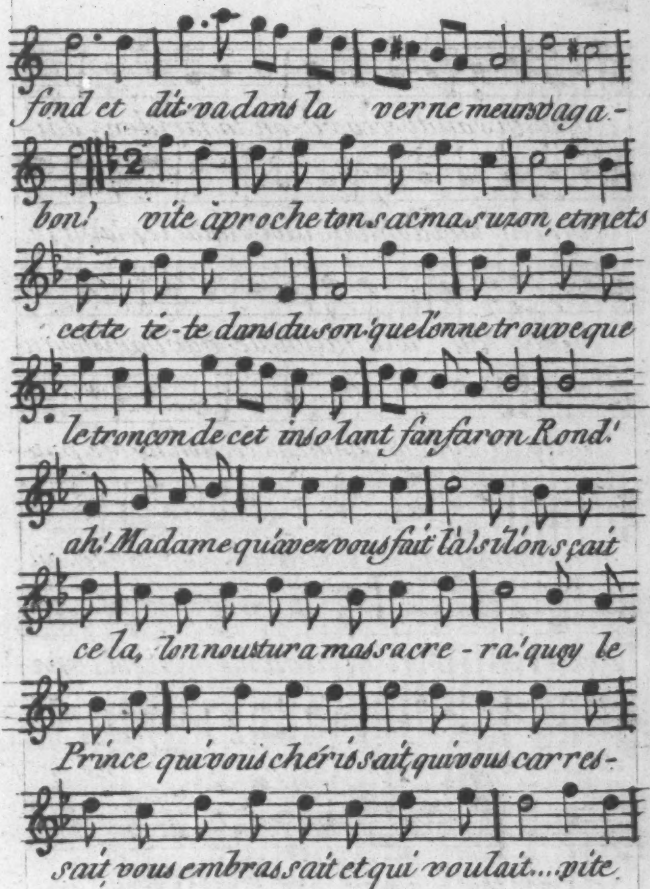 fond et dit: va dans la verne meurs vaga-
2
bon! vite àproche ton sac ma suzon, et mets
cette tê-te dans du son: que l'on ne trouve que
le tronçon de cet insolant fanfaron Rond!
ah! Madame qu'avez vous fait là! si l'on sçait
ce la, l'on nous tura massacre-ra! quoy le
Prince qui vous chérissait, qui vous carres-
sait, vous embrassait et qui voulait.... vite